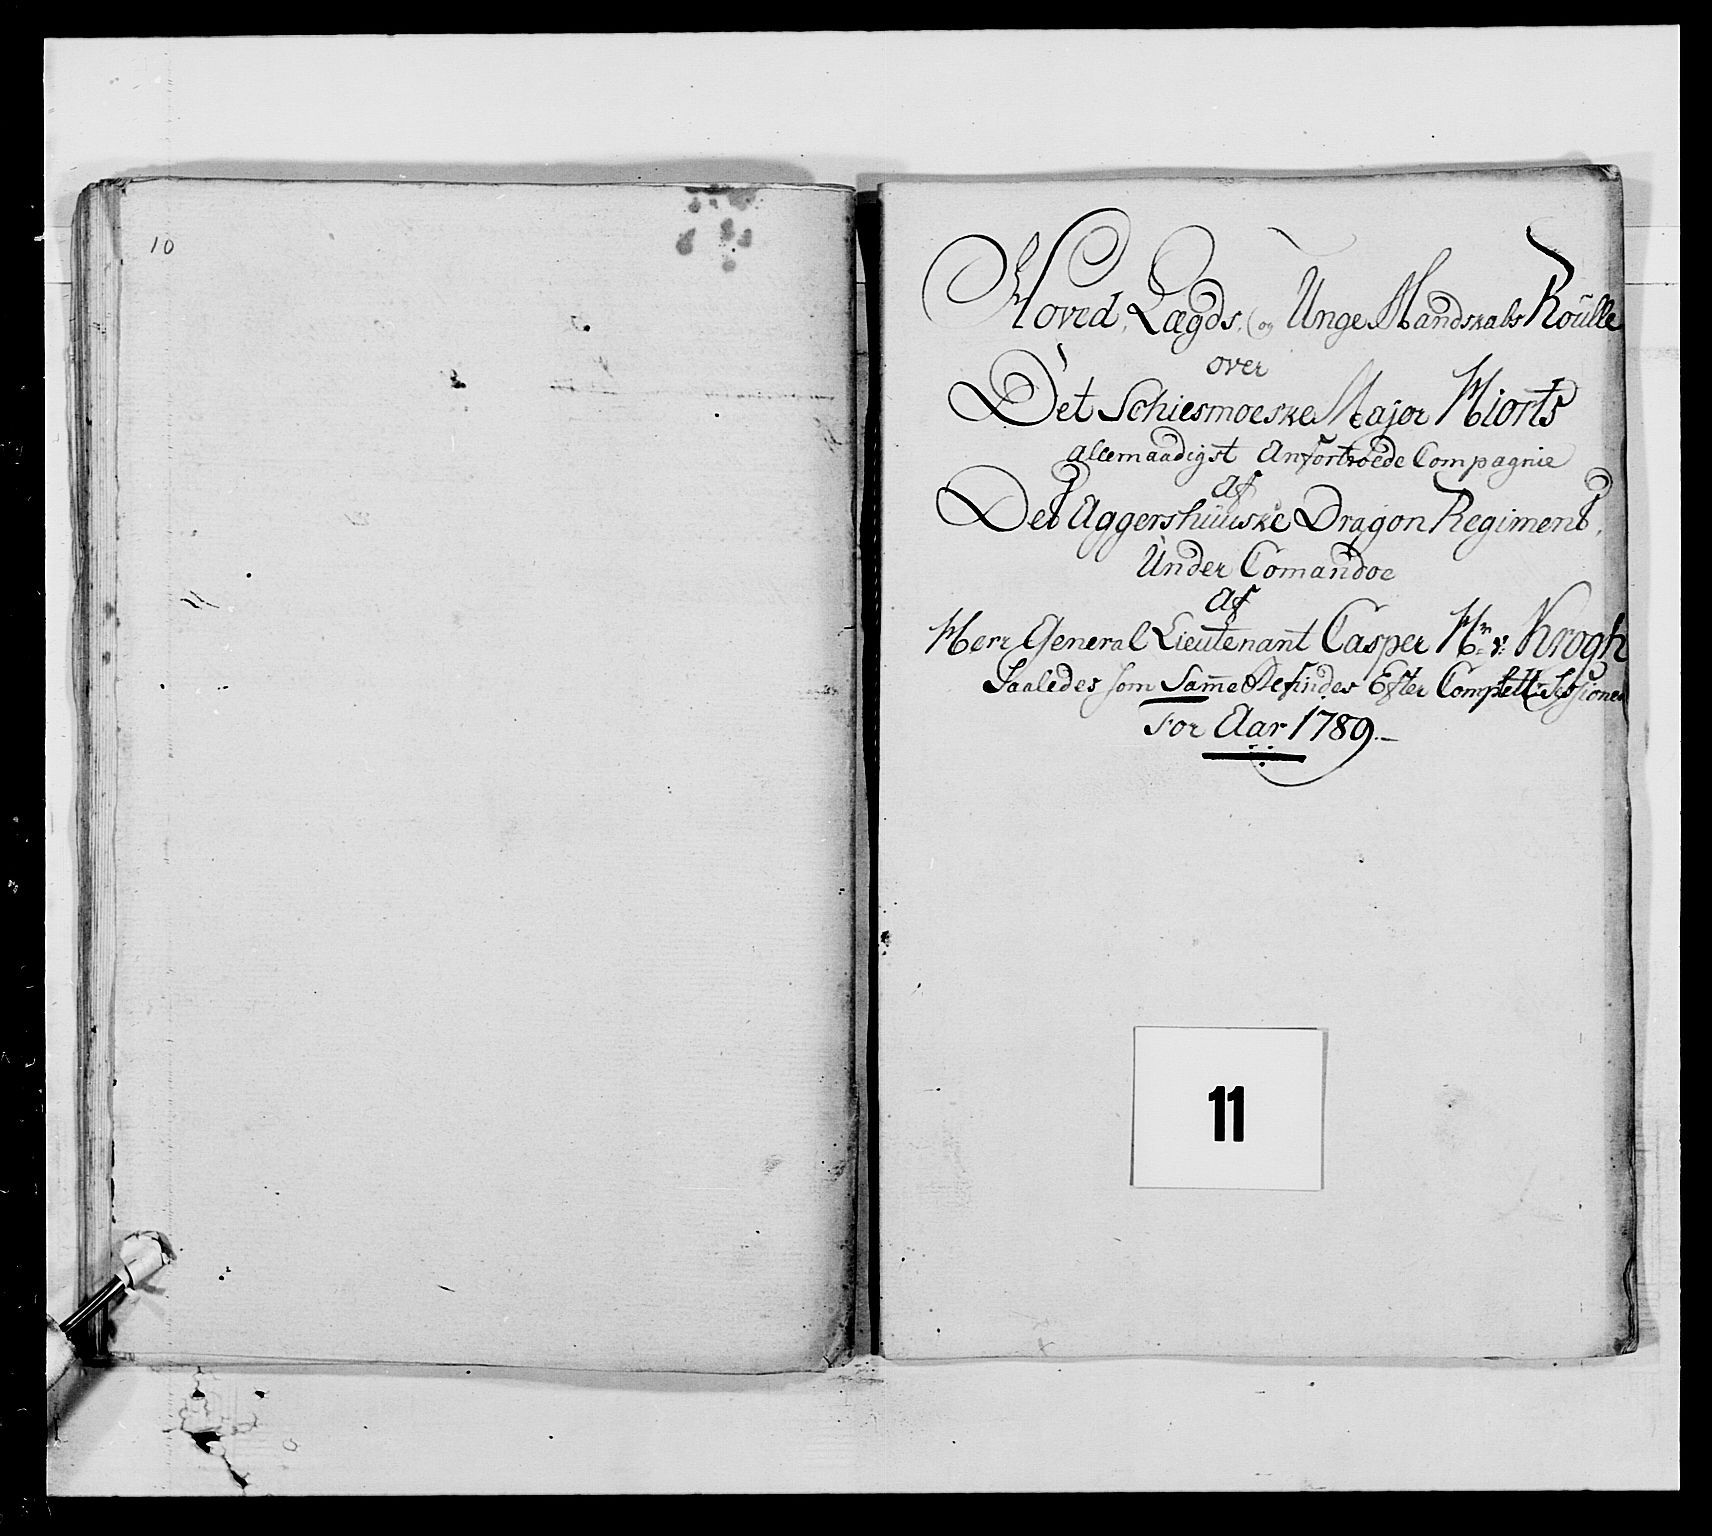 10
Hoved, Lægds, og Unge Mandskabs Roülle
over
Det Schiesmoeske Major Hiorts
allernaadigst Anfortroede Compagnie
Af
Det Aggershuuske Dragon Regiment,
Under Comandoe
Af
Herr General Lieutenant Casper Hr: v: Krogh
Saaledes som Same Befindes Efter Complett: Sessionen
For Aar 1789.
11